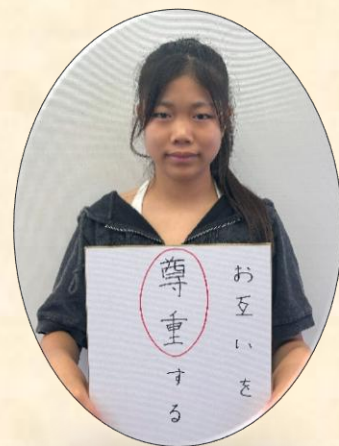 お互いを
尊重する